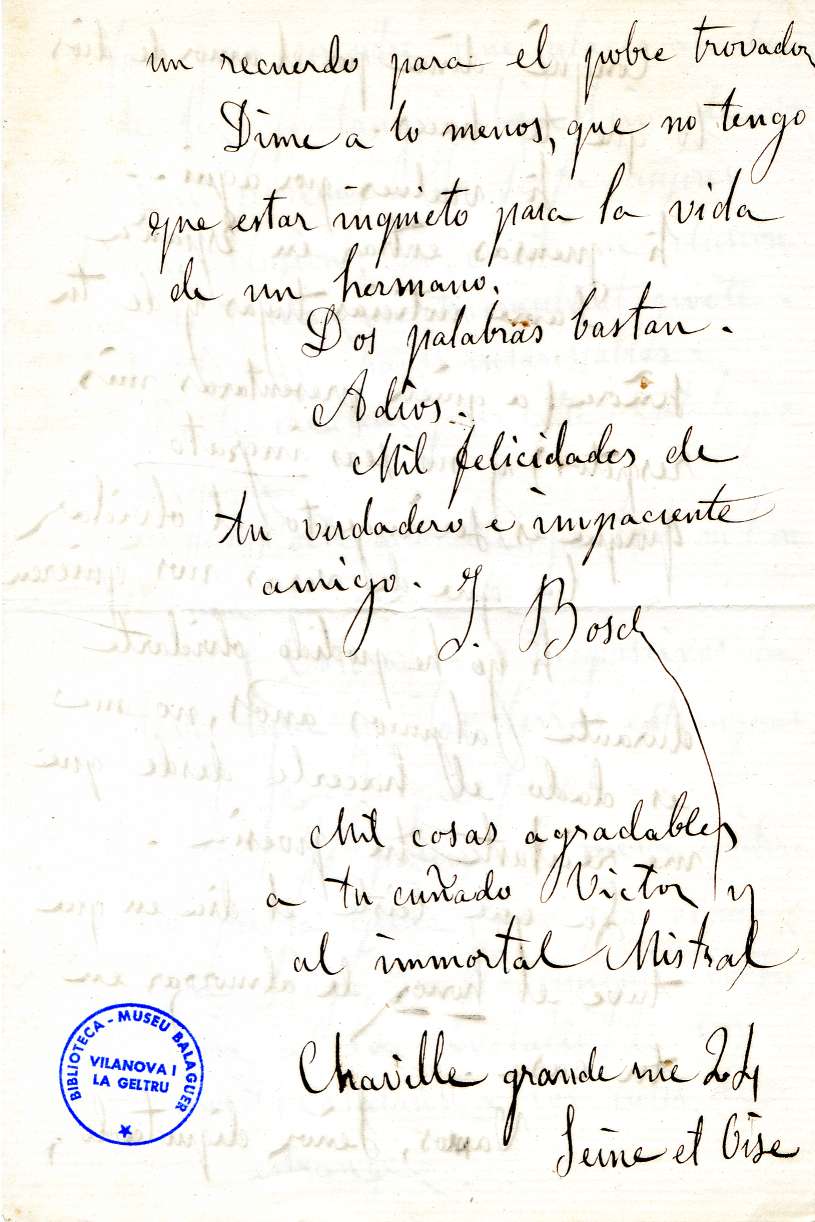 un recuerdo para el pobre trovador
Dime a lo menos, que no tengo
que estar inquieto para la vida
de un hermano.
Dos palabras bastan.
Adios.
Mil felicidades de
tu verdadero e impaciente
amigo. J. Bosch
Mil cosas agradables
a tu cuñado Victor y
al immortal Mistral
Chaville grande rue 24
Seine et Oise
BIBLIOTECA - MUSEU BALAGUER
VILANOVA I
LA GELTRU